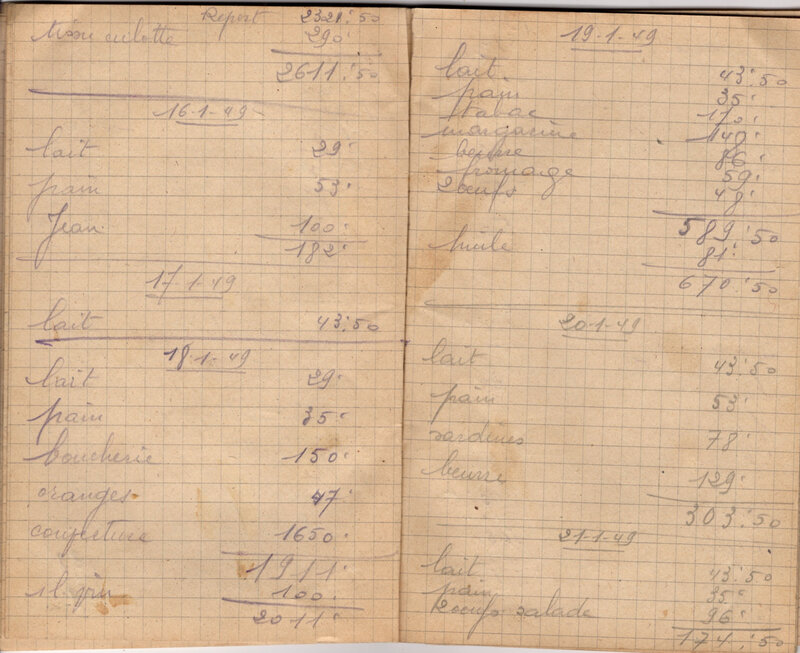 Report 2321:50
Tissu culotte 290
2611:50
16-1-49
lait 29
pain 53
Jean 100
182
17-1-49
lait 43:50
18-1-49
lait 29
pain 35
boucherie 150
oranges 47
couverture 1650
1911
100
2011
19-1-49
lait 43:50
pain 35
tabac 170
margarine 148
beurre 86
fromage 59
2 oeufs 48
589:50
huile 81
670:50
20-1-49
lait 43:50
pain 53
sardines 78
beurre 129
303:50
21-1-49
lait 43:50
pain 35
2 oeufs salade 96
174:50